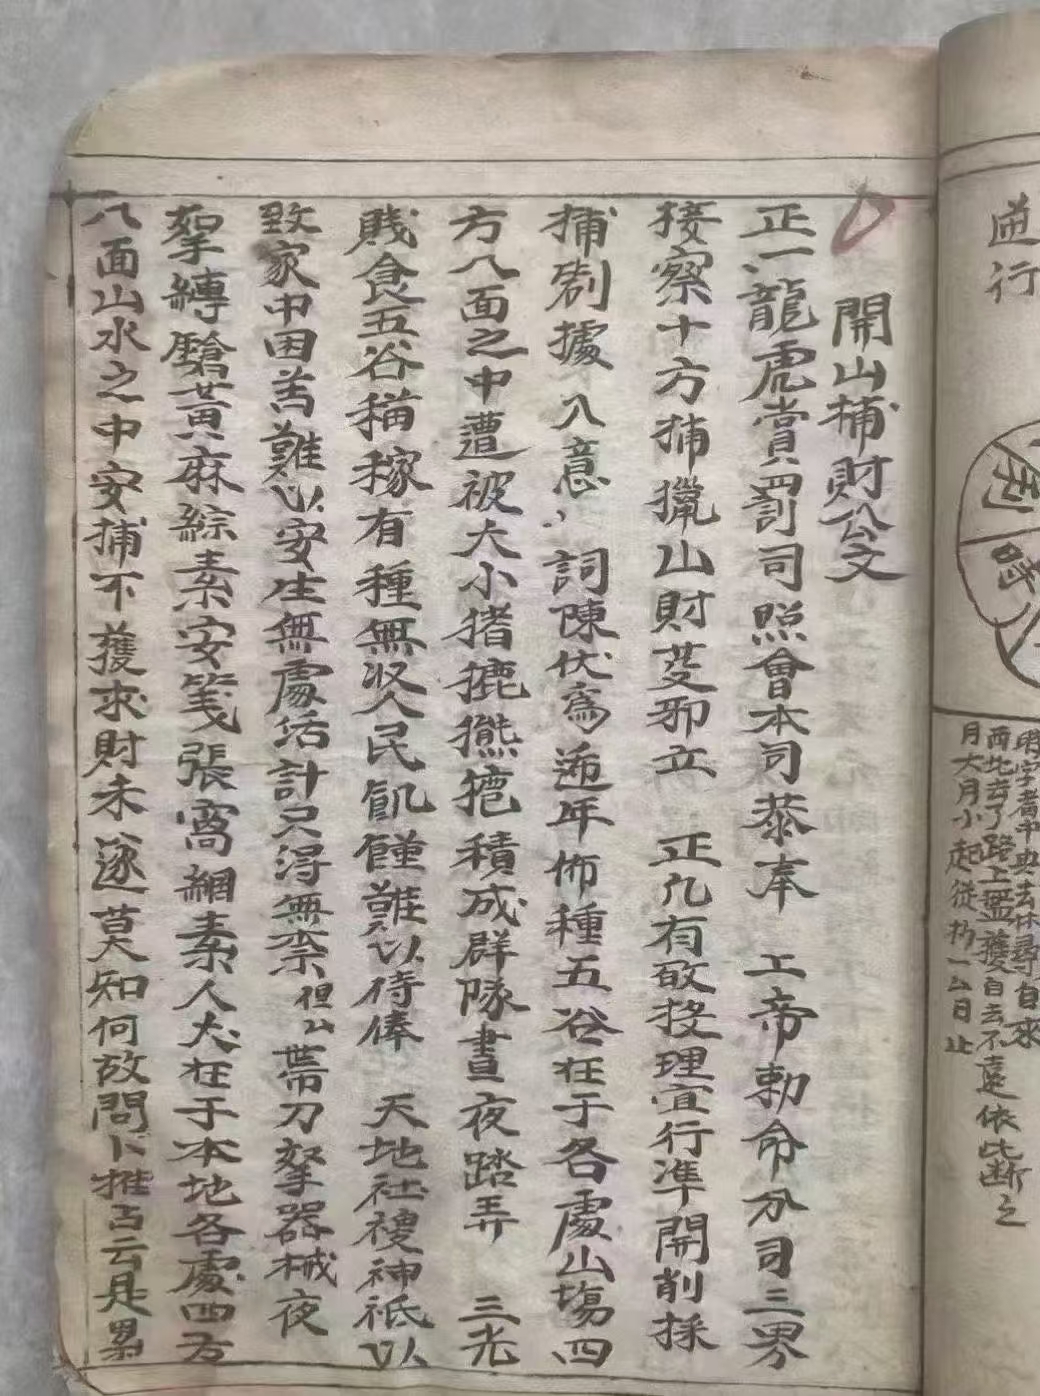 迊行
時字者中央去休尋自來
西北去了路上盤獲自去不遠依此斷之
月大月小起從初一公日止
開山捕財公文
正一龍虎賞罰司照會本司恭奉　上帝勅命分司三界
接察十方捕獵山財芟邪立　正凡有敢投理宜行準開削採
捕劄據　入意　詞陳伏為邇年佈種五谷在于各處山塲四
方八面之中遭被大小猪㹢熊㹢積成群隊晝夜踏弄　三光
賤食五谷稱稼有種無収人民飢饉難以侍俸　天地社稷神祇以
致家中困苦難以安生無處活計只得無柰但厶帶刀拏器械夜
拏縛鎗黃麻綜素安箋張窩綱素人犬在于本地各處四方
八面山水之中安捕不獲求財未遂莫知何故問卜推占云是累